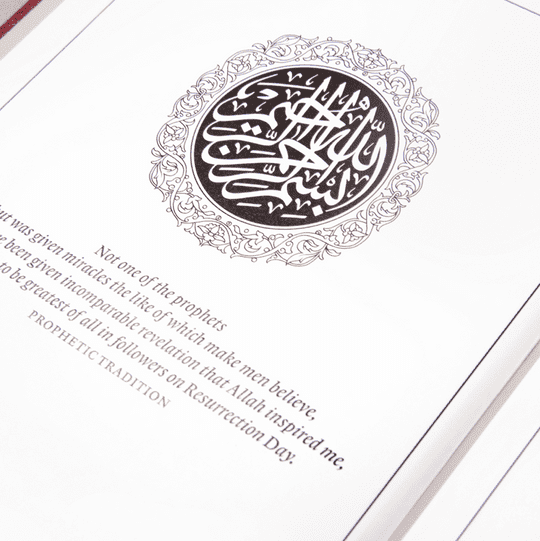 بسم الله الرحمن الرحيم
Not one of the prophets
but was given miracles the like of which make men believe,
been given incomparable revelation that Allah inspired me,
to be greatest of all in followers on Resurrection Day.
PROPHETIC TRADITION